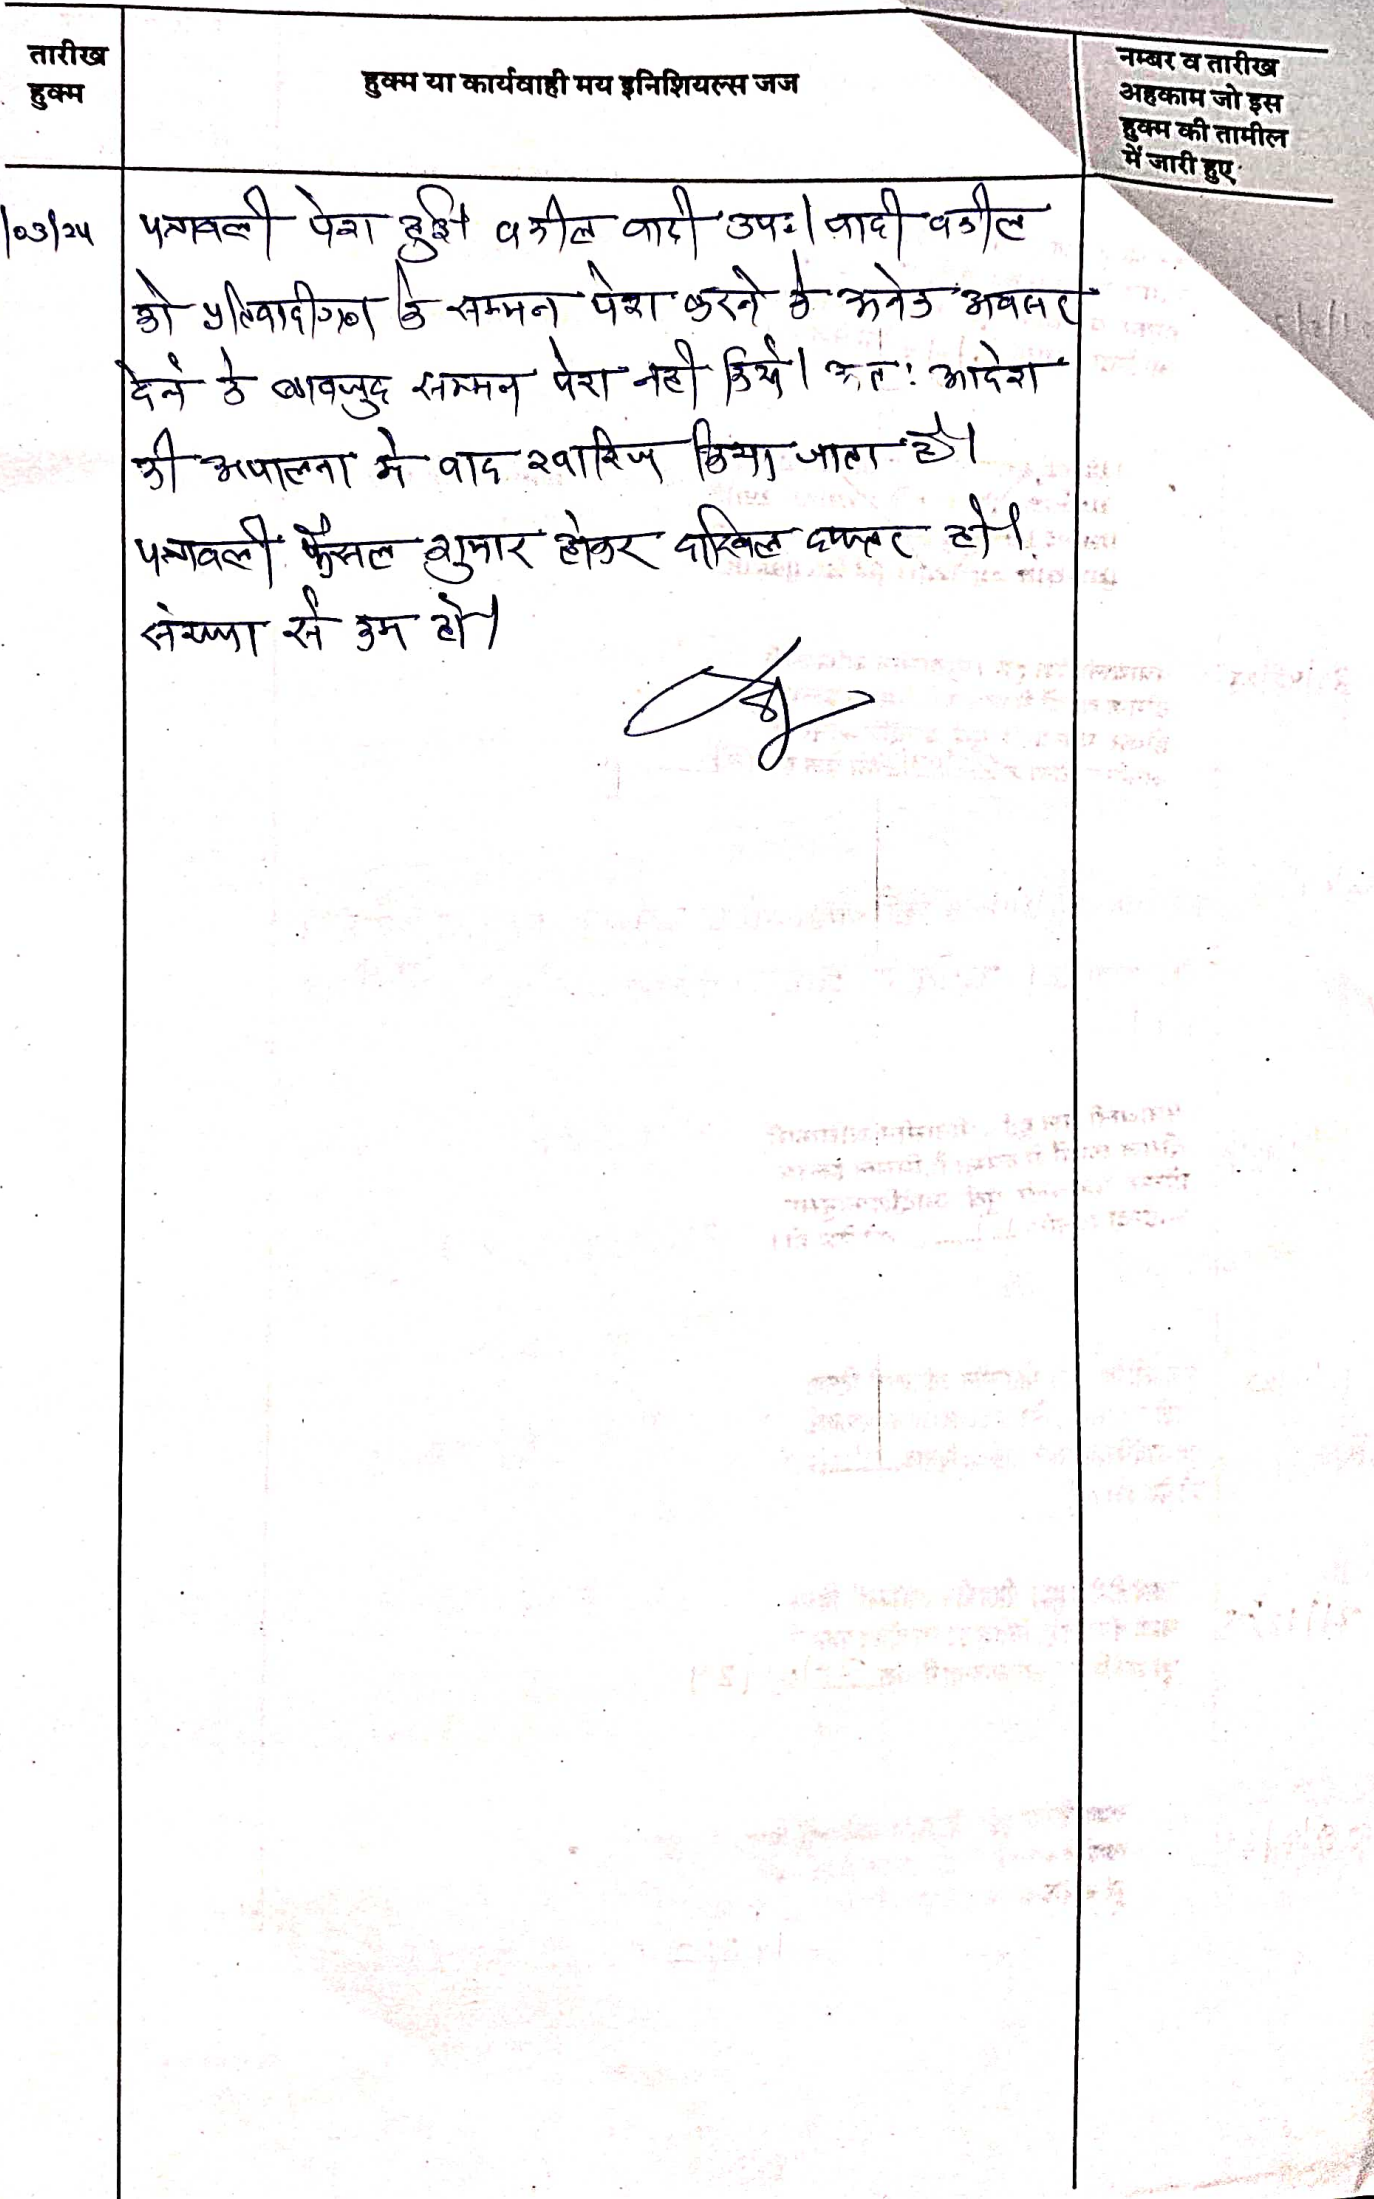 तारीख
हुक्म
हुक्म या कार्यवाही मय इनिशियल्स जज
नम्बर व तारीख
अहकाम जो इस
हुक्म की तामील
में जारी हुए
/03/24 पत्रावली पेश हुई। वकील वादी उप०। वादी वकील
को प्रतिवादीगण के सम्मन पेश करने के अनेक अवसर
देने के बावजुद सम्मन पेश नही किये। अतः आदेश
की अपालना मे वाद खारिज किया जाता है।
पत्रावली फैसल शुमार होकर दाखिल दफ्तर हो।
संख्या से कम हो।